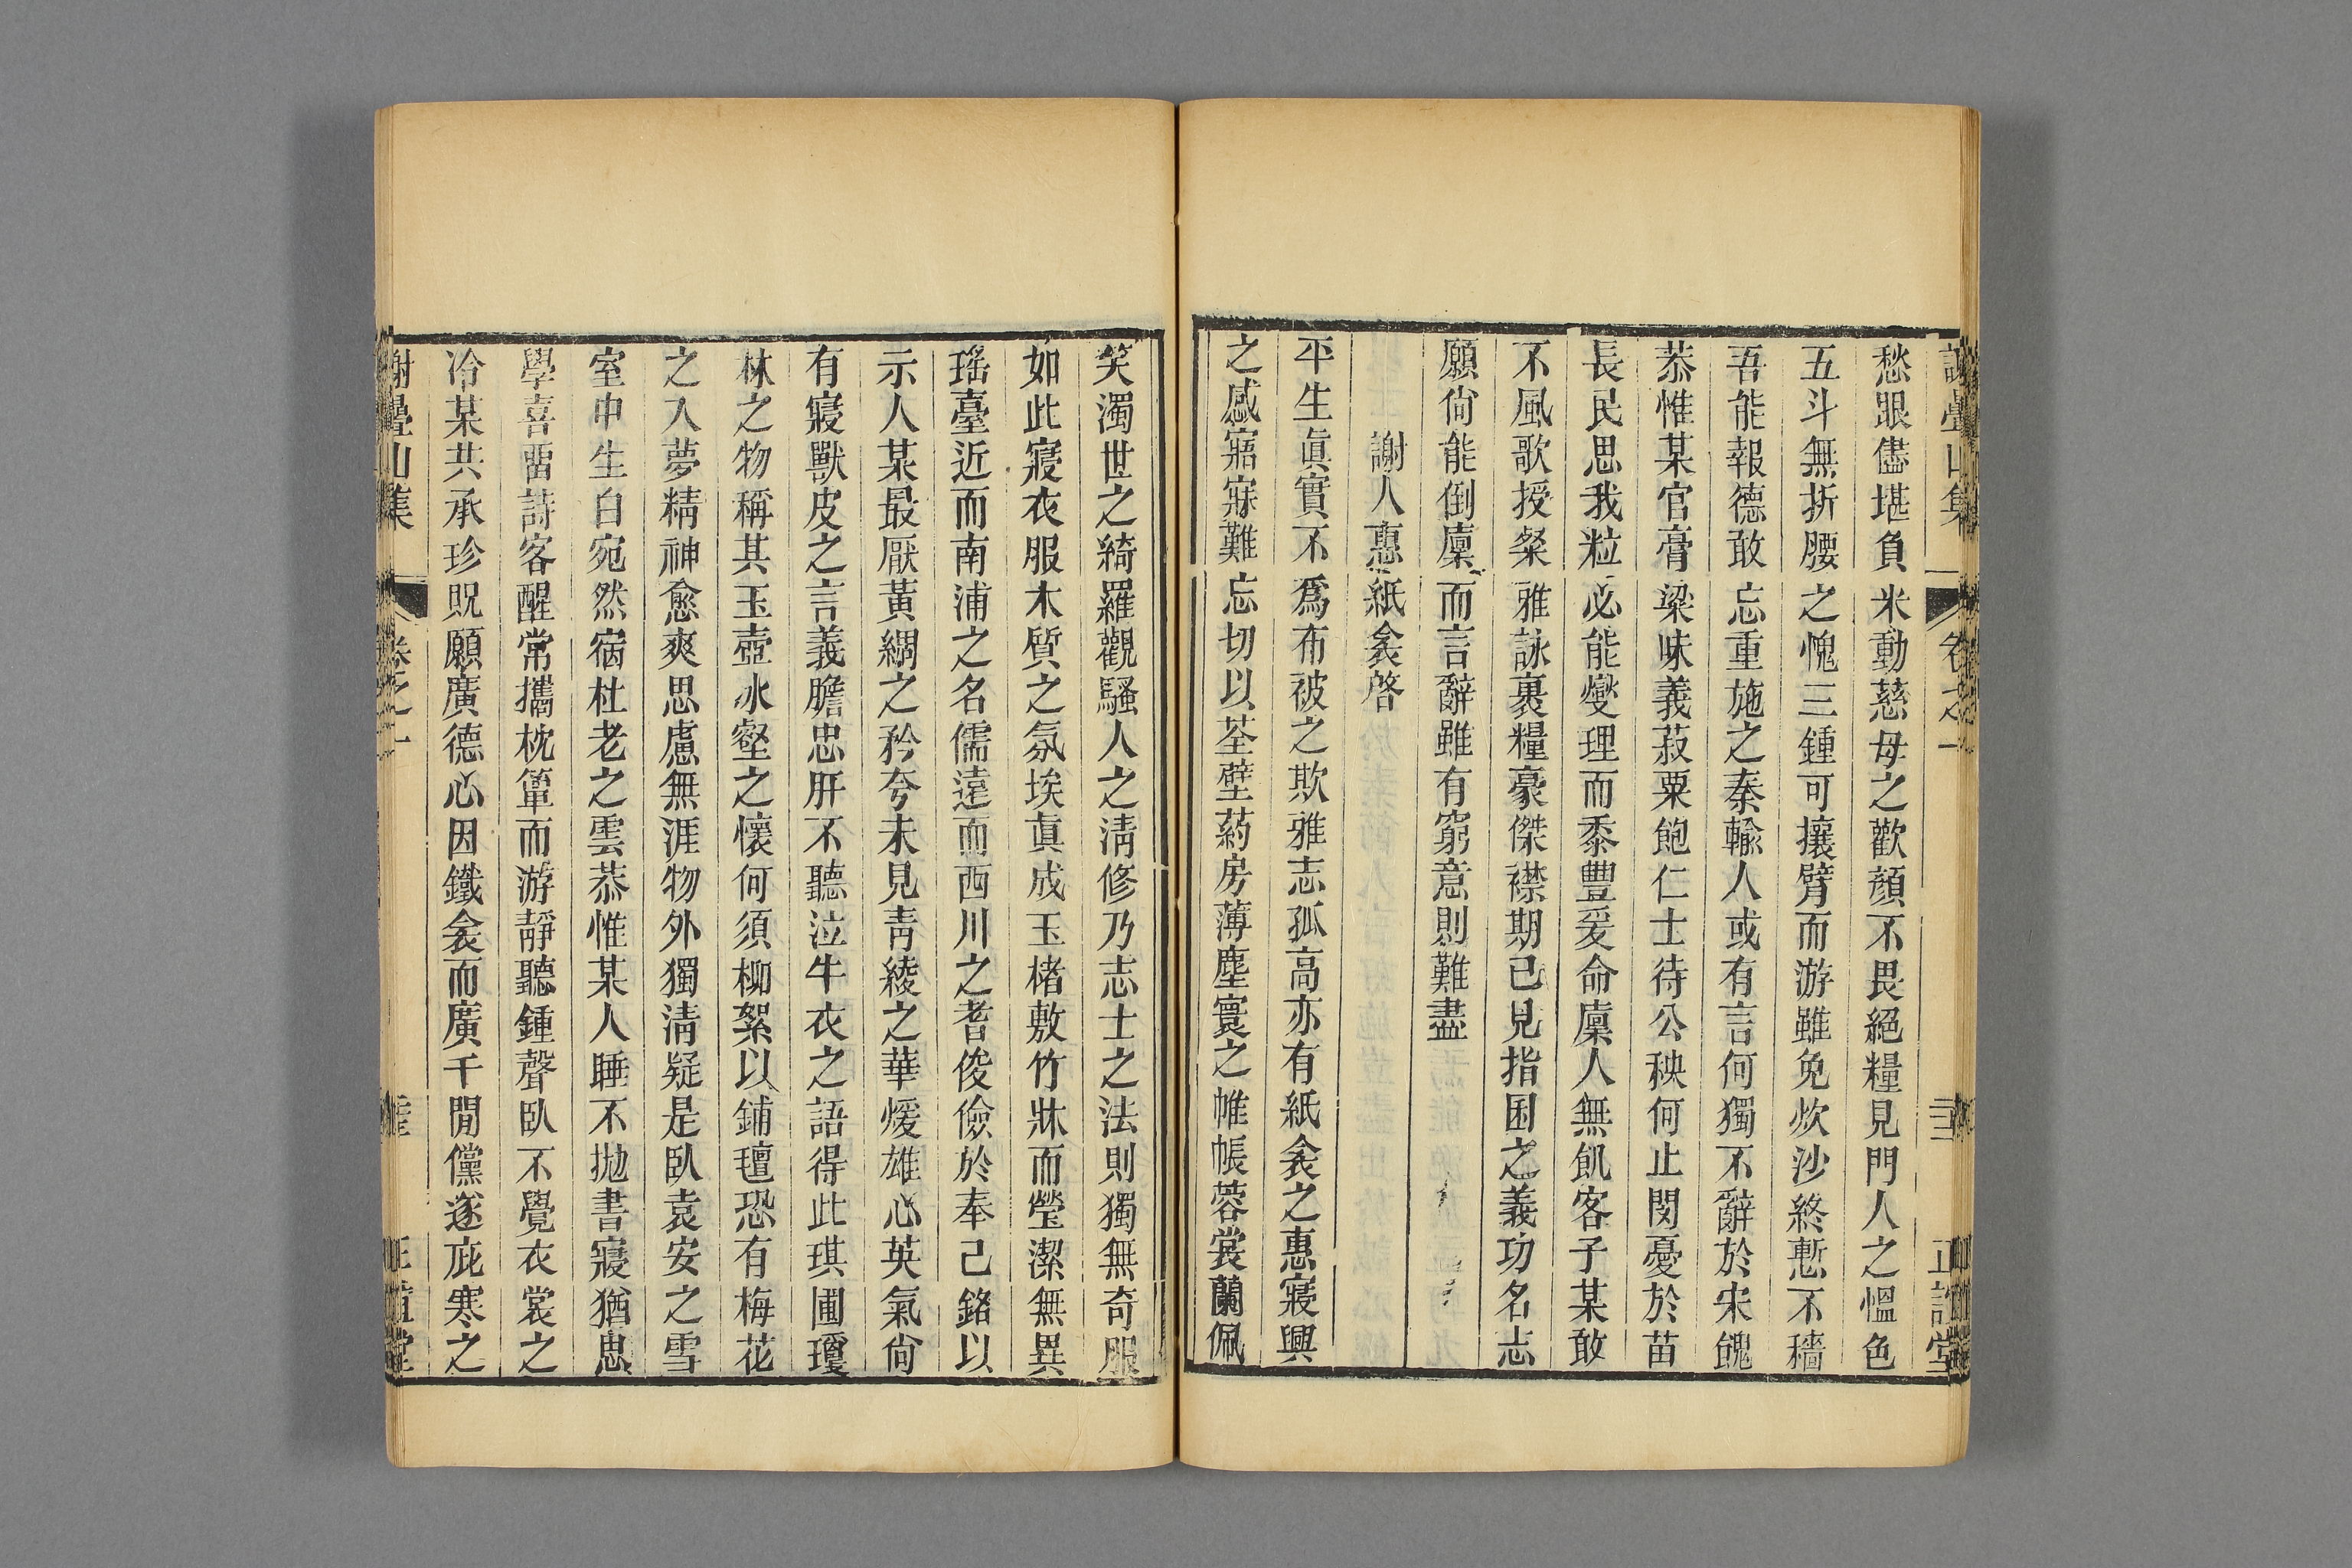 愁眼儘堪負米動慈母之歡顏不畏絕糧見門人之慍色
五斗無折腰之愧三鍾可攘臂而游雖免炊沙終慙不穡
吾能報德敢忘重施之秦輸人或有言何獨不辭於宋餽
恭惟某官膏梁味義菽粟飽仁士待公秧何止閔憂於苗
長民思我粒必能燮理而黍豐爰命廩人無飢客子某敢
不風歌授粲雅詠裹糧豪傑襟期已見指囷之義功名志
願尙能倒廩而言辭雖有窮意則難盡
謝人惠紙衾啓
平生眞實不爲布被之欺雅志孤高亦有紙衾之惠寢興
之感寤寐難忘切以荃壁葯房薄塵寰之帷帳蓉裳蘭佩
笑濁世之綺羅觀騷人之淸修乃志士之法則獨無奇服
如此寢衣服木質之氛埃眞成玉楮敷竹牀而瑩潔無異
瑤臺近而南浦之名儒遠而西川之耆俊儉於奉己銘以
示人某最厭黃綢之矜夸未見靑綾之華煖雄心英氣尙
有寢獸皮之言義膽忠肝不聽泣牛衣之語得此琪圃瓊
林之物稱其玉壺冰壑之懷何須柳絮以鋪氊恐有梅花
之入夢精神愈爽思慮無涯物外獨淸疑是臥袁安之雪
室中生白宛然宿杜老之雲恭惟某人睡不拋書寢猶思
學喜畱詩客醒常攜枕簟而游靜聽鍾聲臥不覺衣裳之
冷某共承珍貺願廣德心因鐵衾而廣千閒儻遂庇寒之
謝疊山集 卷之二